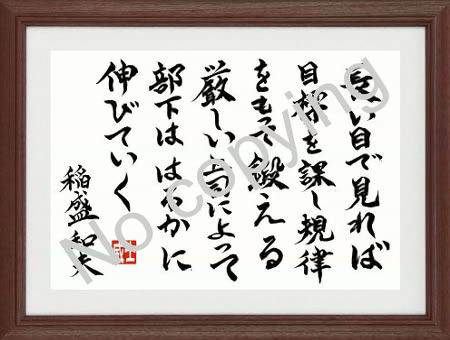 長い目で見れば
目標を課し規律
をもって鍛える
厳しい上司によって
部下ははるかに
伸びていく
稲盛和夫
No copying